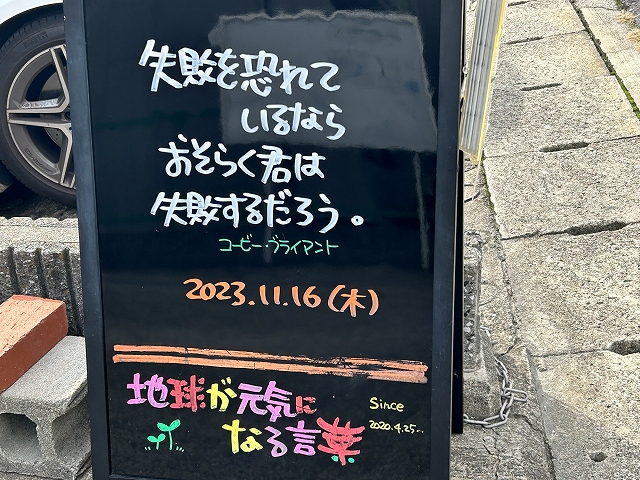 失敗を恐れて
いるなら
おそらく君は
失敗するだろう。
コービー・ブライアント
2023.11.16(木)
地球が元気に
なる言葉
Since
2020.4.25~.